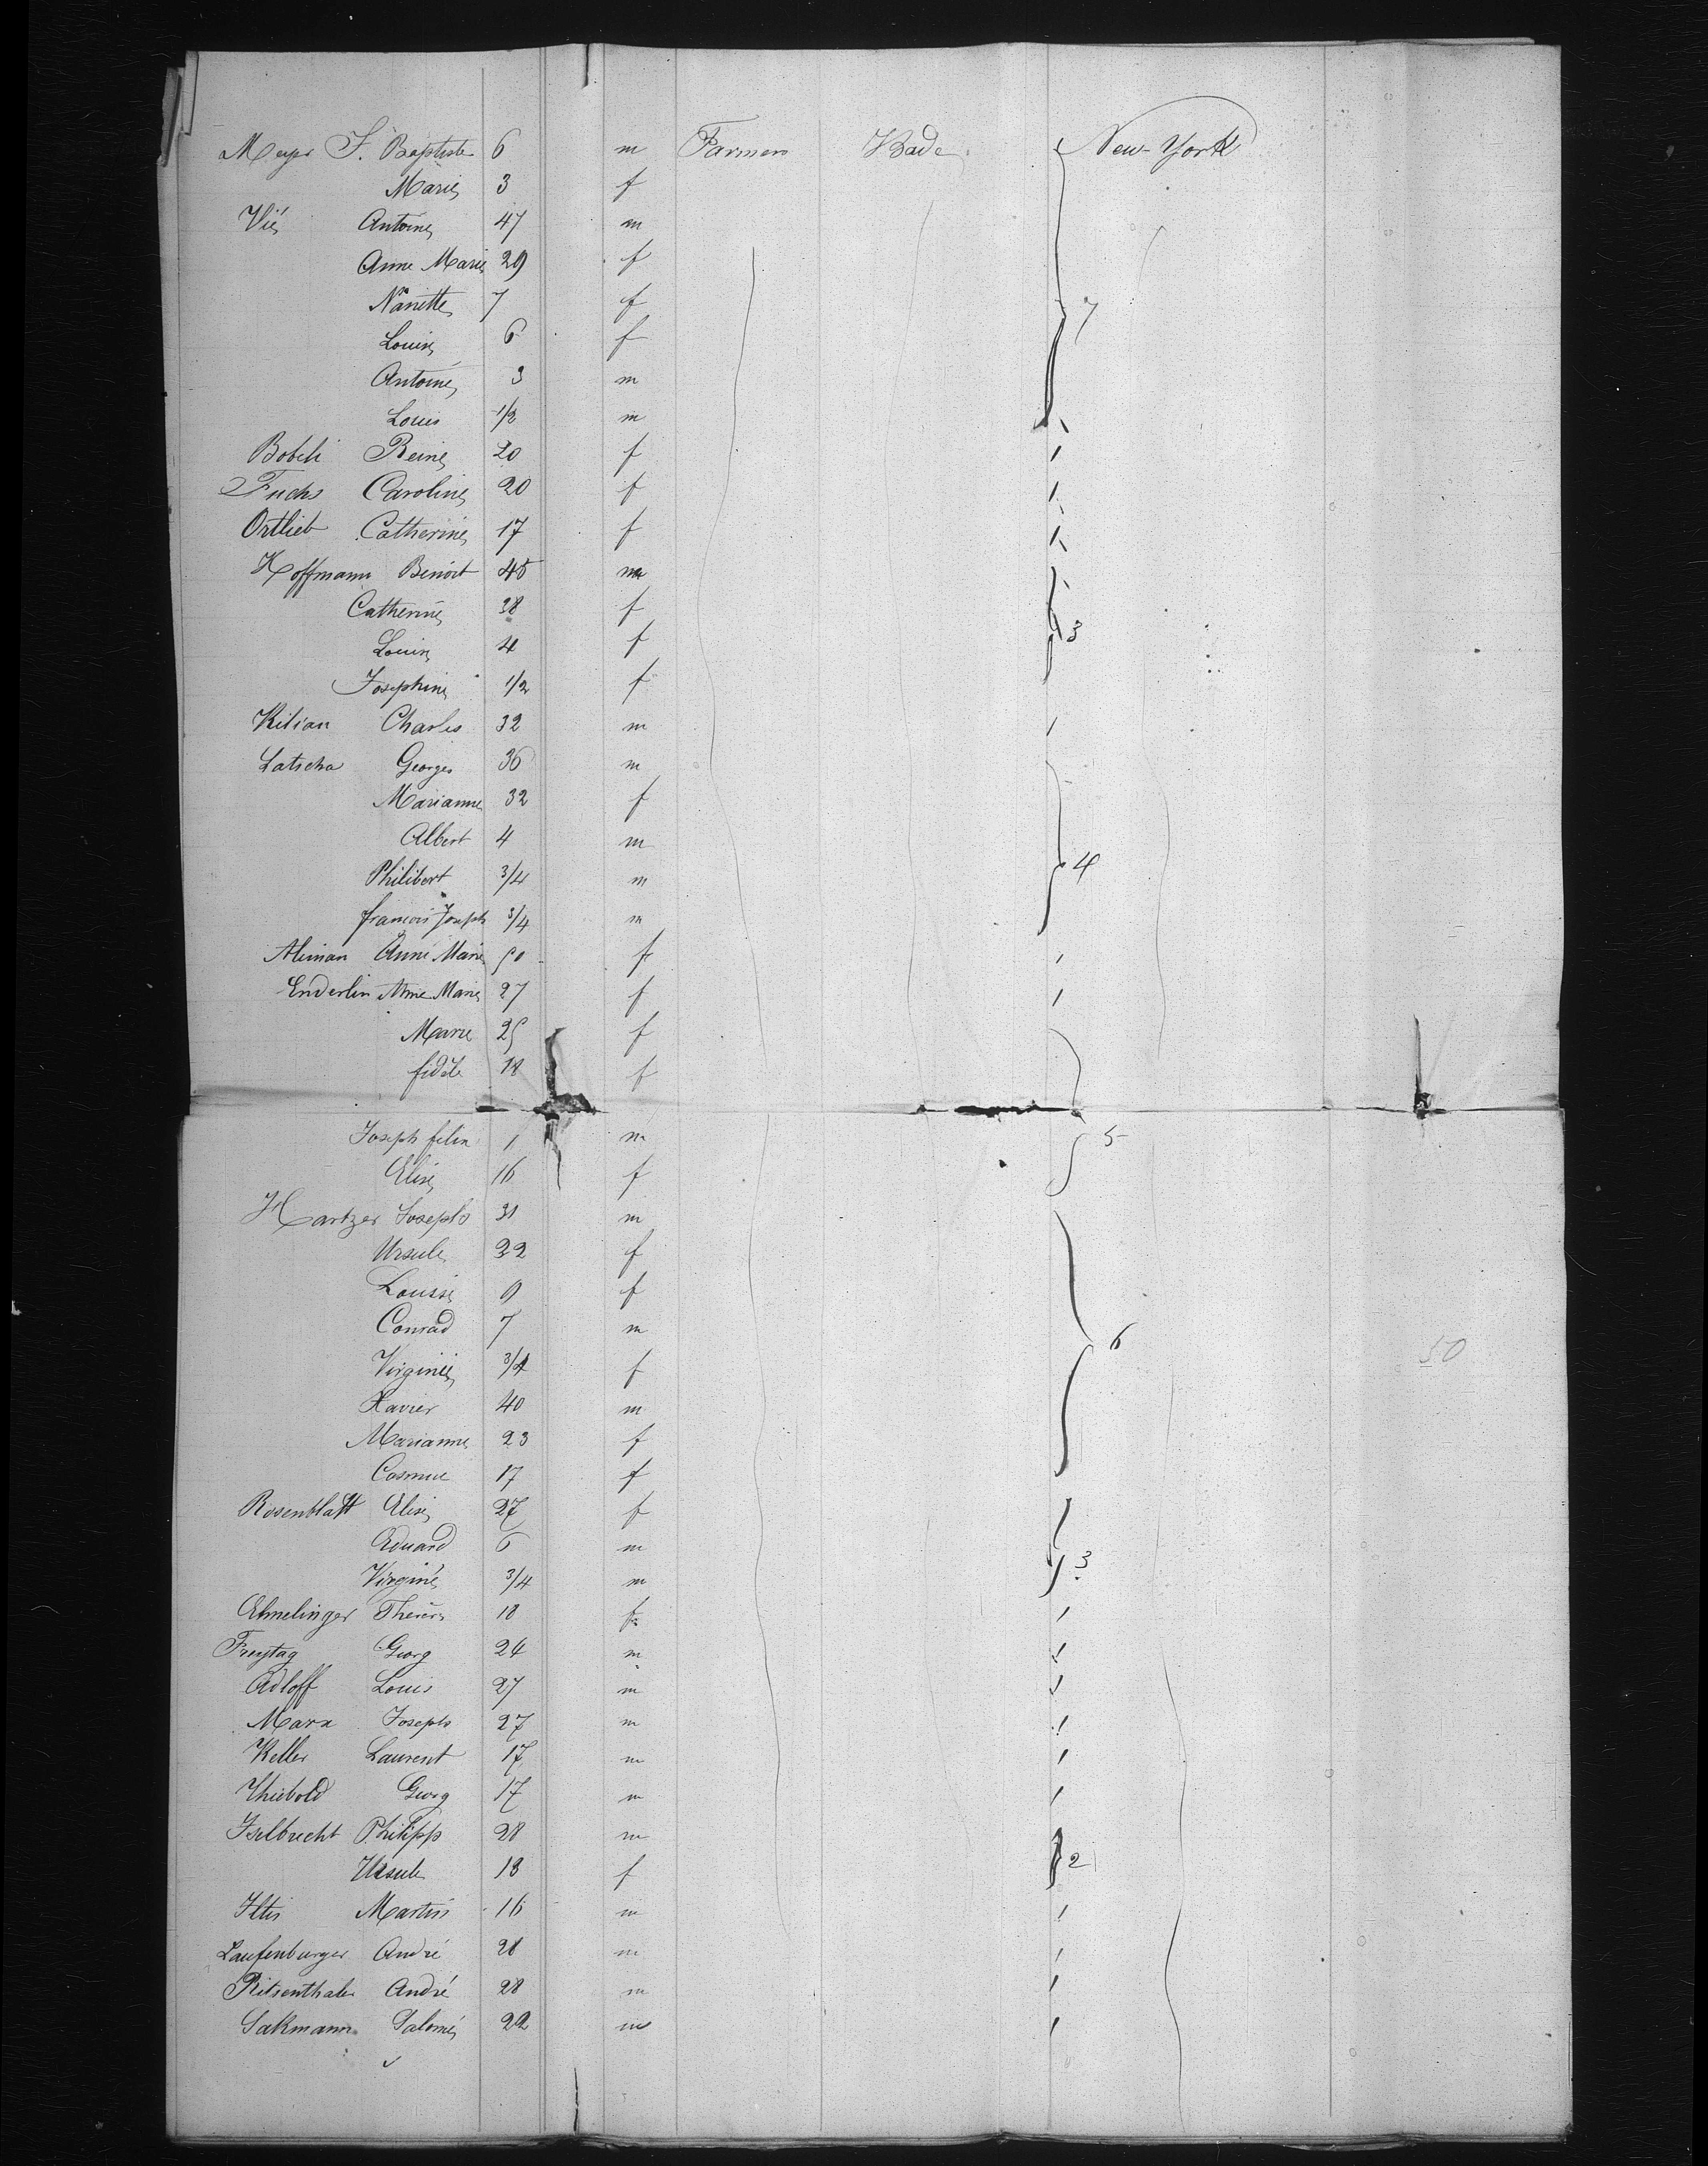 Meyer J. Baptiste 6 m Farmers Bade New-York
Marie 3 f
Vié Antoine 47 m
Anne Marie 29 f
Nanette 7 f 7
Louise 6 f
Antoine 3 m
Louis 1/2 m
Bobeli Reine 20 f 1
Fuchs Caroline 20 f 1
Ortlieb Catherine 17 f 1
Hoffmann Benoit 45 m
Catherine 38 f
Louise 4 f 3
Josephine 1/2 f
Kilian Charles 32 m 1
Latscha Georges 36 m
Marianne 32 f
Albert 4 m
Philibert 3/4 m 4
francois Joseph 3/4 m
Aliman Anne Marie 50 f 1
Enderlin Anne Marie 27 f 1
Marie 25 f
fidele 18 f
Joseph felix 1 m 5
Elise 16 f
Hartzer Joseph 31 m
Ursule 32 f
Louise 9 f
Conrad 7 m 6
Virginie 3/4 f 50
Xavier 40 m
Marianne 23 f
17 f
Rosenblatt Elise 27 f
Eduard 6 m
Virginie 3/4 m 3
Elmelinger Therese 18 f 1
Freytag Georg 24 m 1
Adloff Louis 27 m 1
Marx Joseph 27 m 1
Keller Laurent 17 m 1
Thiebold Georg 17 m 1
Iselbrecht Philipp 28 m
Ursule 18 f 2
Iltis Martin 16 m 1
Laufenburger André 28 m 1
Ritzenthaler André 28 m 1
Sakmann Salomé 22 m 1